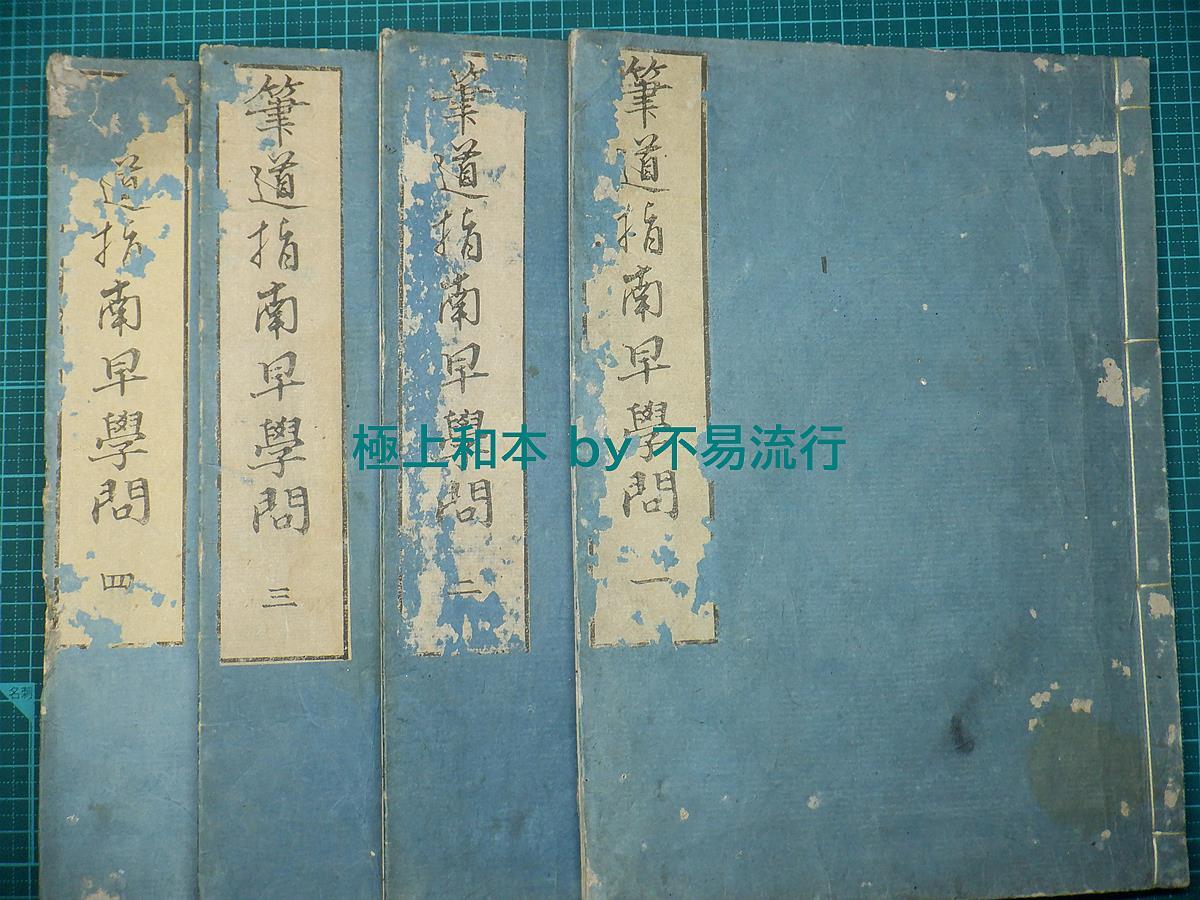 筆道指南早學問 一
筆道指南早學問 二
筆道指南早學問 三
道指南早學問 四
極上和本 by 不易流行
名刺